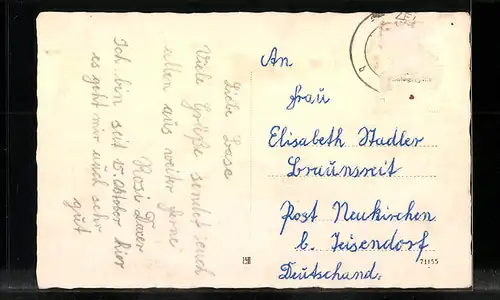 Liebe Base
Viele Grüße sendet euch
allen aus weiter Ferne
Rosi Daxer
Ich bin seit 15. Oktober hier
es geht mir auch sehr
gut
An
Frau
Elisabeth Stadler
Braunsreit
Post Neukirchen
b. Teisendorf
Deutschand.
71155